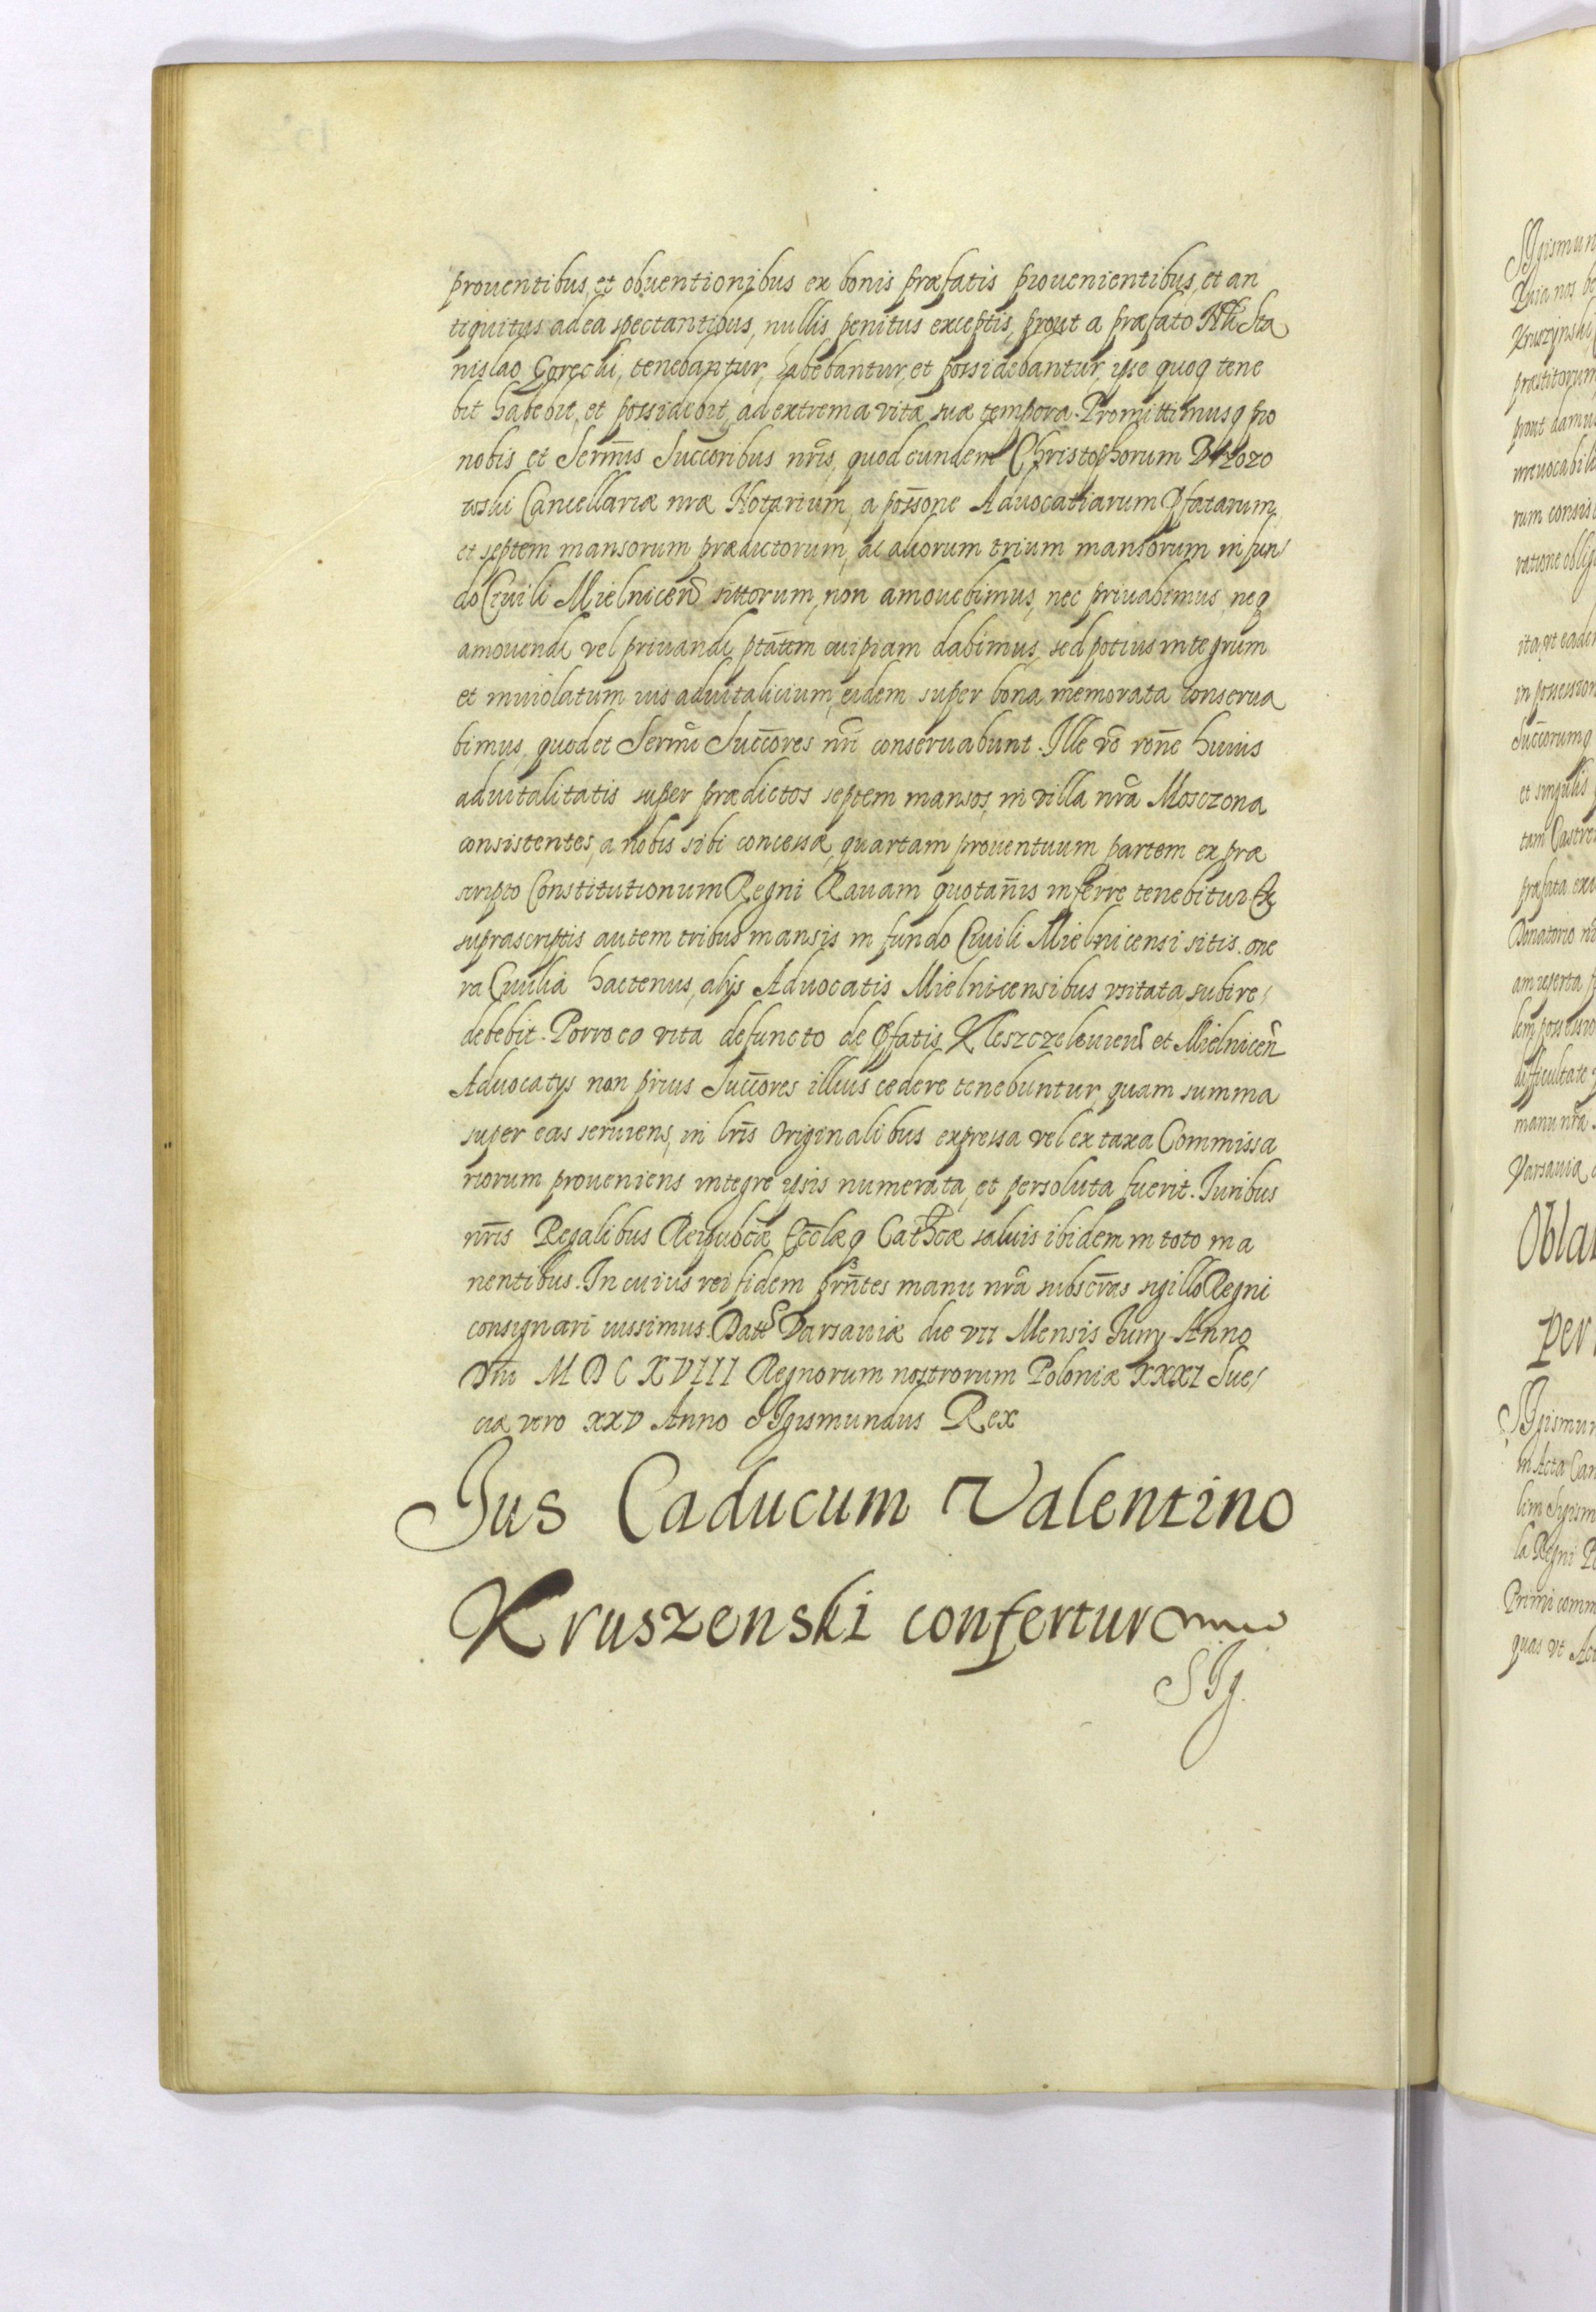 prouentibus, et obuentionibus ex bonis præfatis prouenientibus, et an
tiquitus ad ea spectantibus, nullis penitus exceptis, prout a præfato Sta
nislao Gorecki, tenebantur, habebantur, et possidebantur, ipse quoq tene
bit habebit, et possidebit, ad extrema vitæ suæ tempora. Promittimusq pro
nobis et Sermīs Succoribus nrīs, quod eundem Christophorum Brzozo
wski Cancellariæ nræ Notarium, a possone Aduocatiarum pfatarum,
et septem mansorum prædictorum, ac aliorum trium mansorum in fun/
do Ciuili Mielnicen sittorum, non amouebimus, nec priuabimus, neq
amouendi vel priuandi ptātem cuipiam dabimus, sed potius integrum
et inuiolatum ius aduitalicium, eidem super bona memorata conserua
bimus, quod et Sermī Succores nrī conseruabunt. Ille vō rōne huius
aduitalitatis super prædictos septem mansos, in villa nrā Mosczona
consistentes, a nobis sibi concessæ, quartam prouentuum partem ex præ
scripto Constitutionum Regni Rauam quotañis inferre tenebitur. Ex
suprascriptis autem tribus mansis in fundo Ciuili Mielnicensi sitis. one
ra Ciuilia hactenus, alijs Aduocatis Mielnicensibus vsitata, subire/
debebit. Porro eo vita defuncto de pfatis Kleszczelouien et Mielnicen
Aduocatijs non prius Succores illius cedere tenebuntur, quam summa
super eas seruiens, in lrīs Originalibus expressa vel ex taxa Commissa
riorum proueniens integre ipsis numerata, et persoluta fuerit. Iuribus
nrīs Regalibus Reipubcæ Eccłæq Cathcæ saluis ibidem in toto ma
nentibus. In cuius rei fidem prñtes manu nrā subscrās sigillo Regni
consignari iussimus. Dat Varsauiæ die VII Mensis Iunij Anno
Dnī M D C XVIII Regnorum nostrorum Poloniæ XXXI Sue/
ciæ vero XXV Anno Sigismundus Rex
Jus Caducum Valentino
Kruszenski confertur
Sig.
Sigismun
Quia nos
Kruszynski
præstitorum
prout damus
rum consis
ratione
ita, vt
Succorumq
et singulis
præfata
Donatorio
difficultate
manu nrā
Varsauiæ
Oblat
per
Sigismun
in Acta Can
la Regni
Primi comm
quas vt